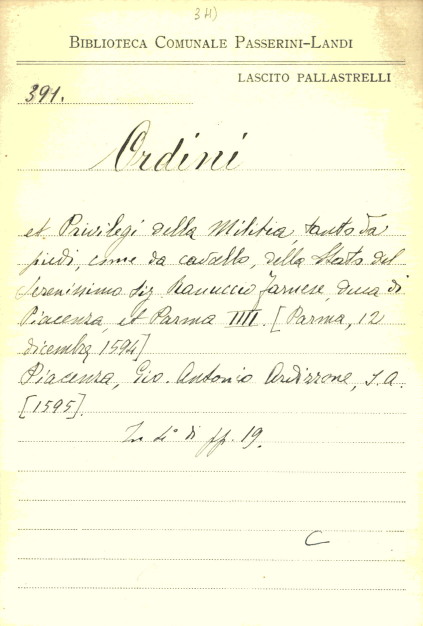 34)
BIBLIOTECA COMUNALE PASSERINI-LANDI
LASCITO PALLASTRELLI
391.
Ordini
et Privilegi della Militia, tanto da
piedi, come da cavallo, dello Stato del
Serenissimo Sig Ranuccio Farnese, duca di
Piacenza, et Parma IIII. [Parma, 12
dicembre 1594]
Piacenza, Gio. Antonio Ardizzone, s.a.
[1595].
In 4° di pp. 19.
C